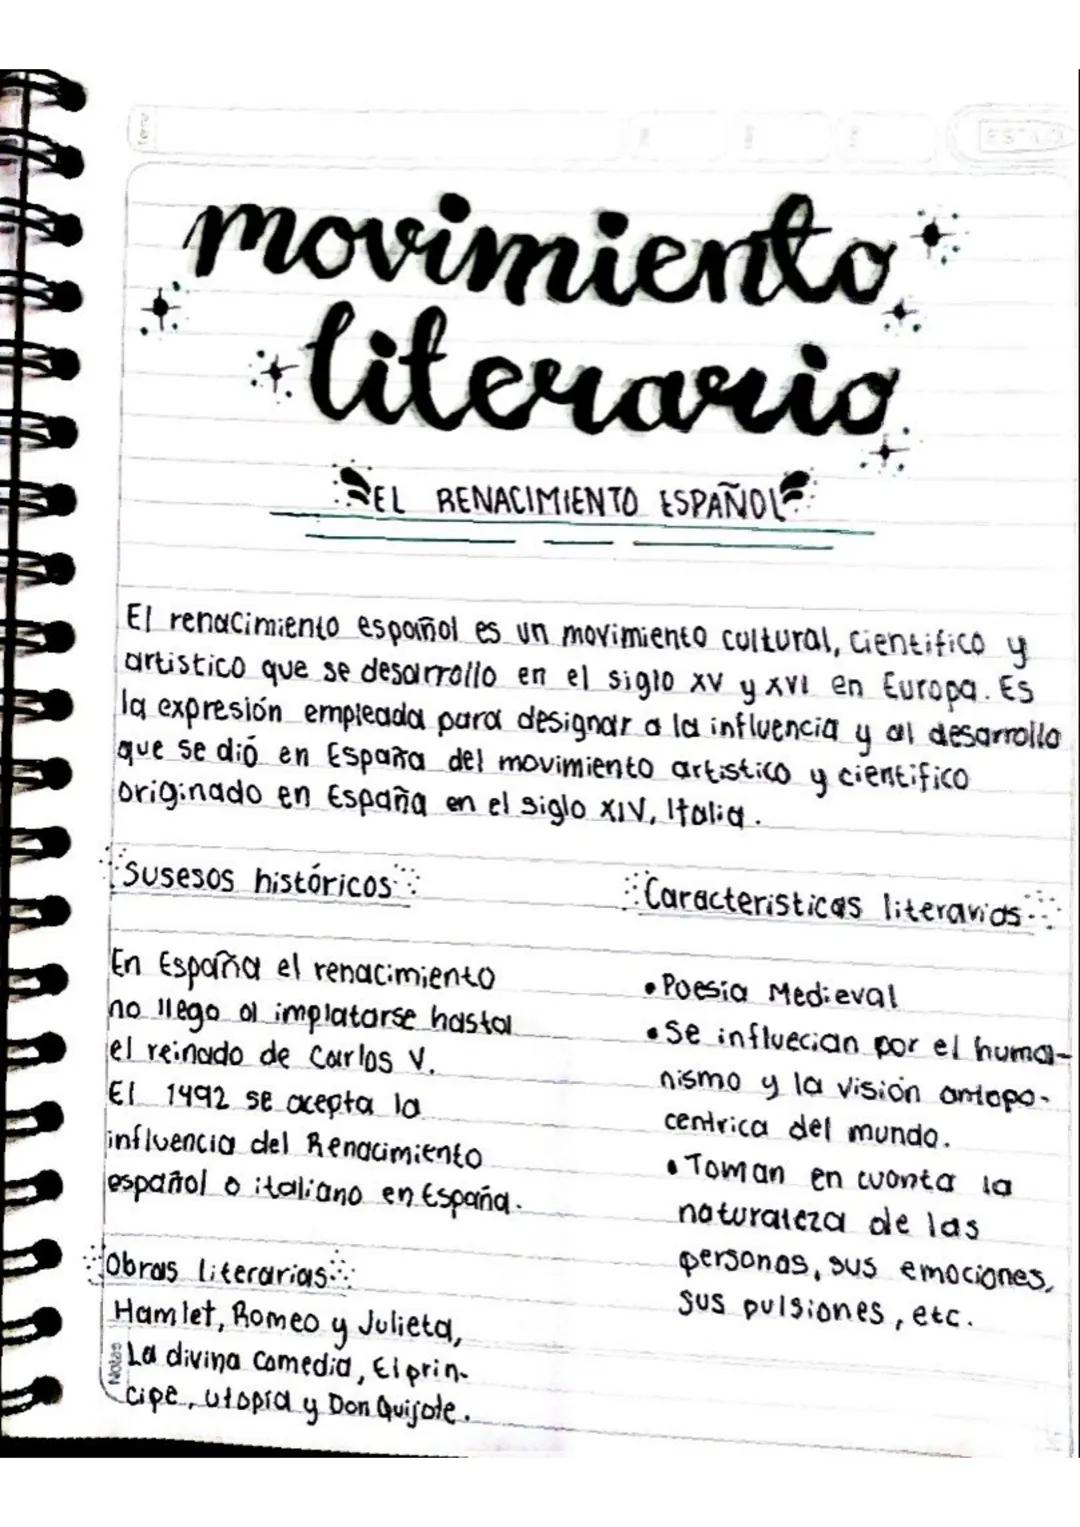 Tema
ESTILO
movimiento
literario
EL RENACIMIENTO ESPAÑOL
El renacimiento español es un movimiento cultural, científico y
artistico que se desarrollo en el siglo XV y XVI en Europa. Es
la expresión empleada para designar a la influencia y al desarrollo
que se dió en España del movimiento artistico y cientifico
originado en España en el siglo XIV, Italia.
Susesos históricos
En España el renacimiento
no llego al implatarse hasta
el reinado de Carlos V.
El 1492 se acepta la
influencia del Renacimiento
español o italiano en España.
Obras literarias
Hamlet, Romeo y Julieta,
La divina Comedia, El prin-
cipe, utopia y Don Quijote.
Notas
Caracteristicas literarias
• Poesia Medieval
• Se influecian por el huma-
nismo y la visión antopo-
centrica del mundo.
• Toman en cuonta la
naturaleza de las
personas, sus emociones,
sus pulsiones, etc.